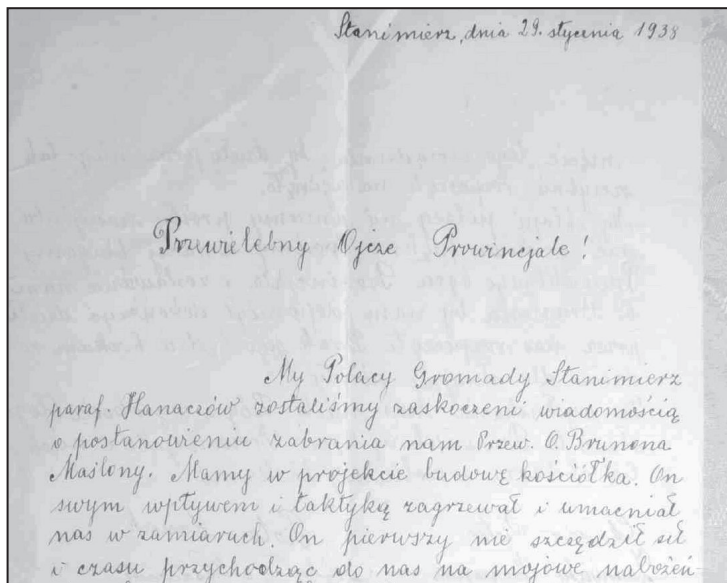 Stanimierz, dnia 29. stycznia 1938
Przewielebny Ojcze Prowincjale!
My Polacy Gromady Stanimierz
paraf. Hanaczów zostaliśmy zaskoczeni wiadomością
o postanowieniu zabrania nam Przew. O. Brunona
Maślony. Mamy w projekcie budowę kościółka. On
swym wpływem i taktyką zagrzewał i umacniał
nas w zamiarach. On pierwszy nie szczędził sił
i czasu przychodząc do nas na majowe nabożeń